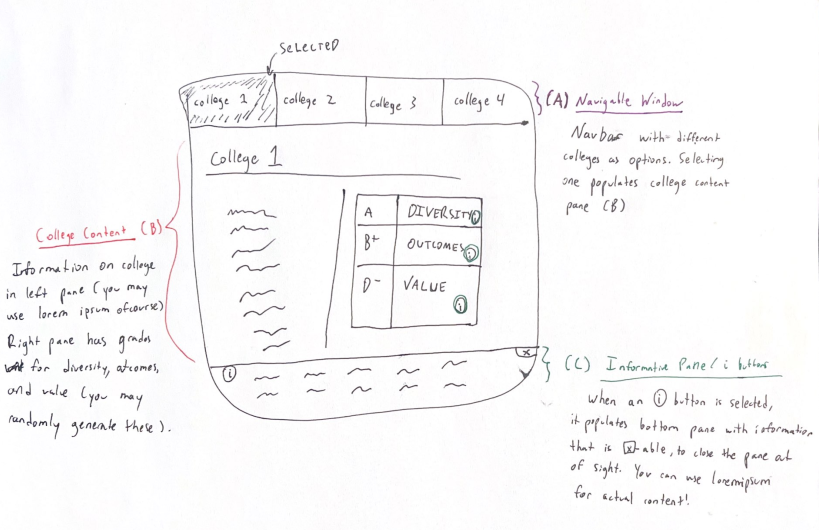 SELECTED
college 1
college 2
college 3
college 4
(A) Navigable Window
Navbar with different
colleges as options. Selecting
one populates college content
pane (B)
College 1
A DIVERSITY i
B+ OUTCOMES i
D- VALUE i
College Content (B)
Information on college
in left pane (you may
use lorem ipsum ofcourse)
Right pane has grades
for diversity, outcomes,
and value (you may
randomly generate these).
x
i
(C) Informative Pane / i buttons
When an i button is selected,
it populates bottom pane with information
that is x-able, to close the pane out
of sight. You can use loremipsum
for actual content!